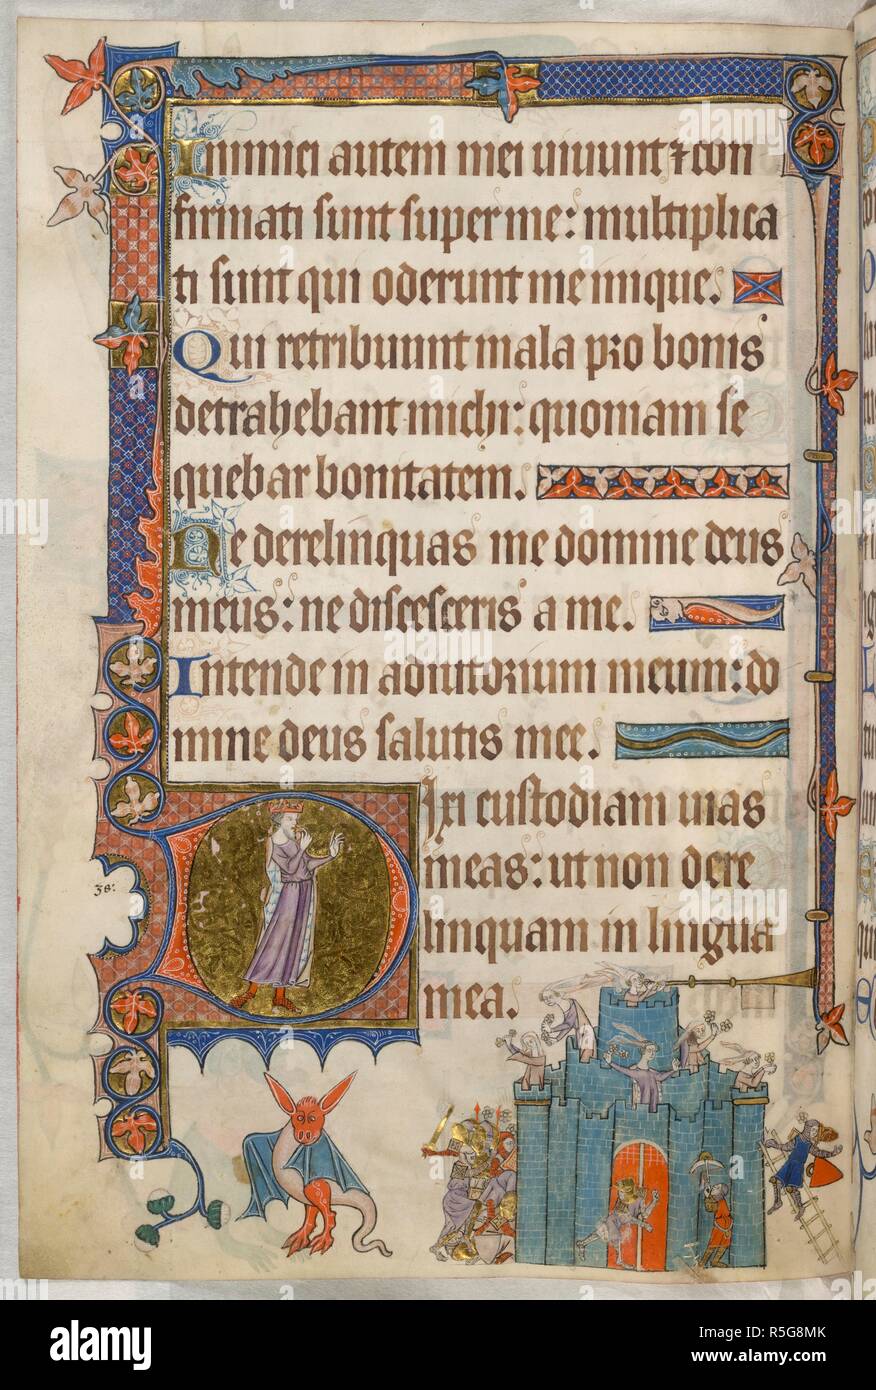 Inimici autem mei uiuunt ⁊ con
firmati sunt super me: multiplica
ti sunt qui oderunt me inique.
Qui retribuunt mala pro bonis
detrahebant michi: quoniam se
quebar bonitatem.
Ne derelinquas me domine deus
meus: ne discesceris a me.
Intende in adiutorium meum: do
mine deus salutis mee.
Dixi custodiam uias
meas: ut non dere
linquam in lingua
mea.
38:
alamy
Image ID: R5G8MK
www.alamy.com